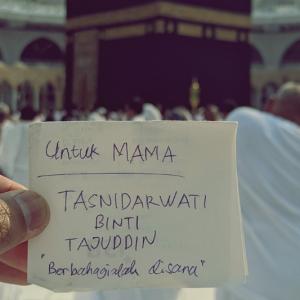 Untuk MAMA
TASNIDARWATI
BINTI
TAJUDDIN
"Berbahagialah disana"